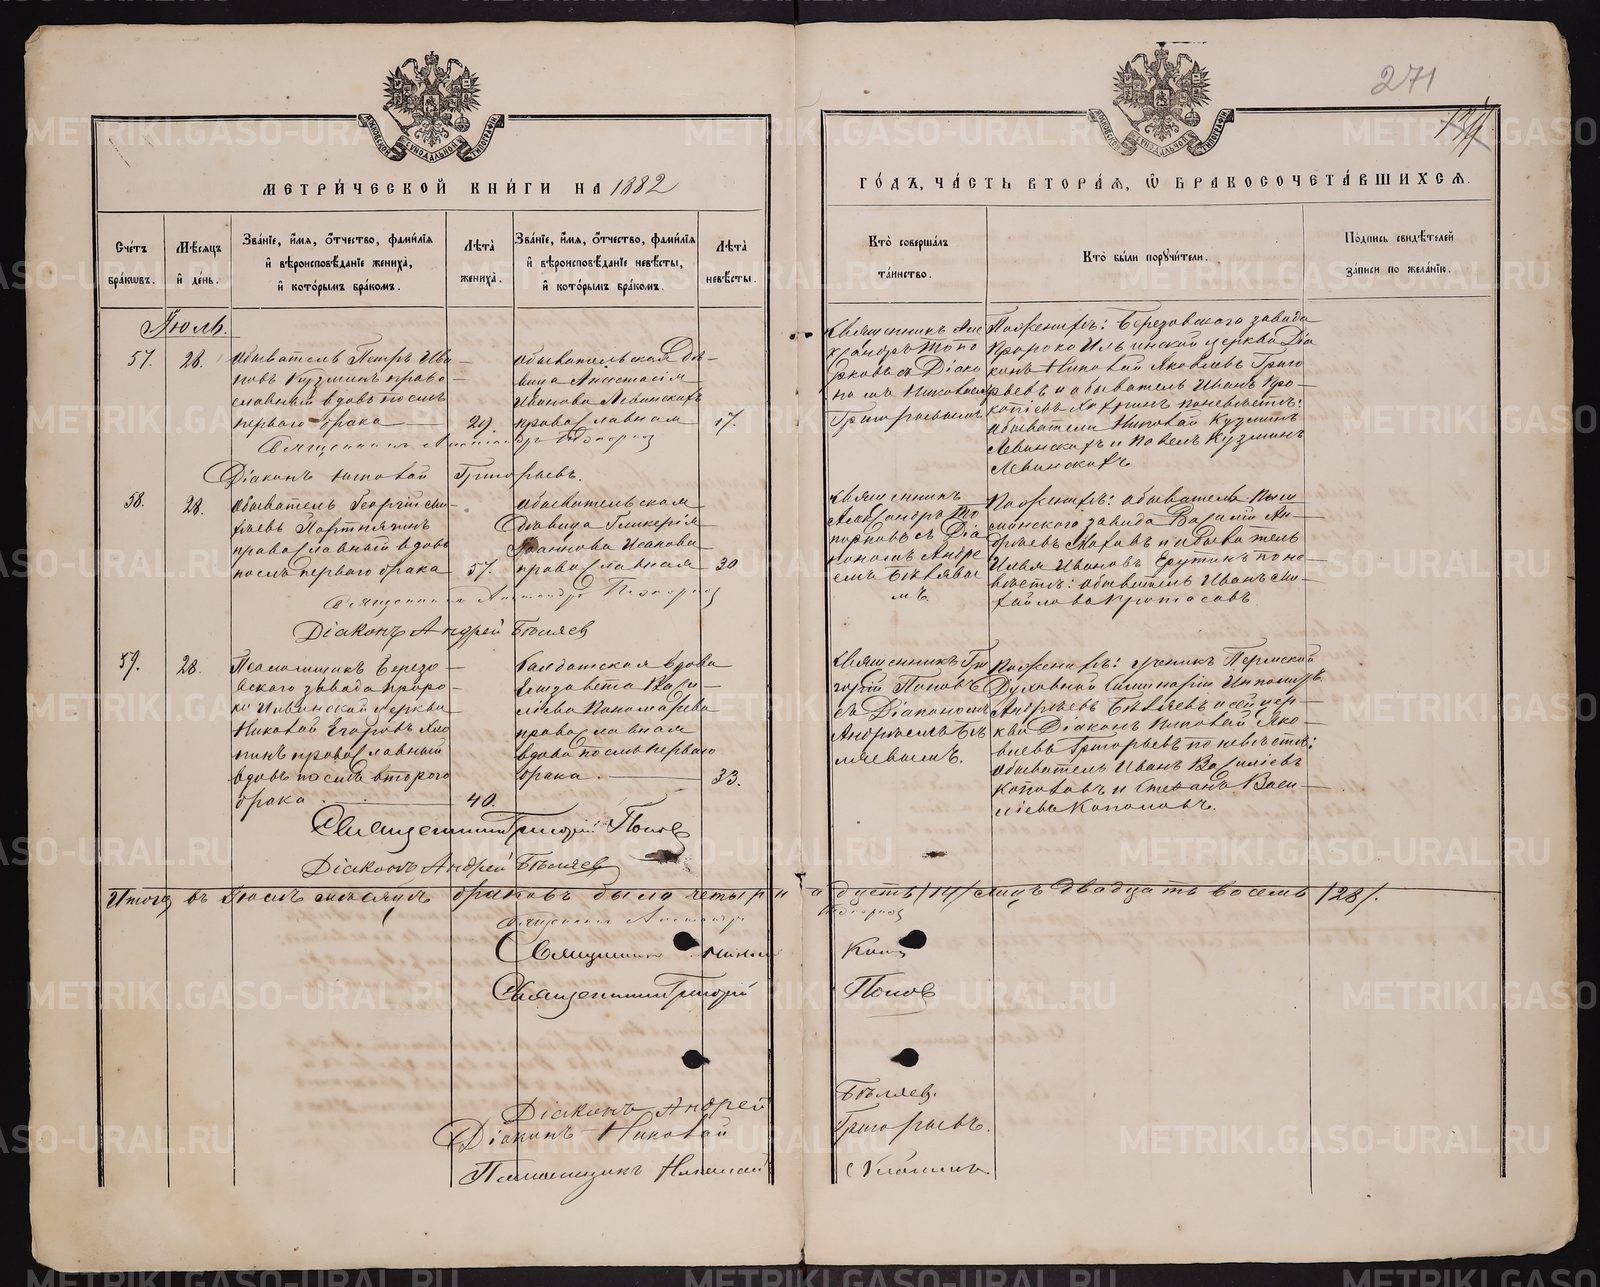 271
МОСКОВСКОЙ СѴНОДАЛЬНОЙ ТИПОГРАФІИ
МЕТРИ́ЧЕСКОЙ КНИ́ГИ НА 1882
ГО́ДЪ, ЧА́СТЬ ВТОРА́Ѧ, Ѿ БРАКОСОЧЕТА́ВШИХСѦ.
Сче́тъ бра́кωвъ.
Мѣ́сяцъ и́ де́нь.
Зва́ніе, и́мя, ѻ́тчество, фами́лія и́ вѣроисповѣ́даніе жениха̀, и́ кото́рымъ бра́комъ.
Лѣ́та жениха̀.
Зва́ніе, и́мя, ѻ́тчество, фами́лія и́ вѣроисповѣ́даніе невѣ́сты, и́ кото́рымъ бра́комъ.
Лѣ́та невѣ́сты.
Кто̀ соверша́лъ та́инство.
Кто̀ бы́ли порꙋчи́тели.
Подпись свидѣ́телей за́писи по жела́нію.
Іюль.
57.
28.
обыватель Петръ Ива-
новъ Кузминъ право-
славный вдовъ послѣ
перваго брака
29.
обывательская дѣ-
вица Анастасія
Иванова Левинскихъ
православная
17.
Священникъ
Александръ Топо
рковъ съ Діако
номъ Николаемъ
Григорьевымъ
По женихѣ: Березовскаго завода
Пророко Ильинской церкви Діа
конъ Николай Яковлевъ Григо
рьевъ и обыватель Иванъ Про-
копіевъ по невѣстѣ:
обыватели Николай Кузминъ
Левинскихъ и Павелъ Кузминъ
Левинскихъ
Священникъ Александръ Топорков
Діаконъ Николай Григорьевъ.
58.
28.
обыватель Георгій Ми-
хаевъ
православный вдовъ
послѣ перваго брака
57.
обывательская
дѣвица Гликерія
Іоаннова Исакова
православная
30
Священникъ
Александръ То
порковъ съ Діа
кономъ Андре
емъ Бѣляевы
мъ.
По женихѣ: обыватель Пыш
минскаго завода Василій Ан-
дреевъ и обыватель
Илья Ивановъ по не-
вѣстѣ: обыватель Иванъ Ми-
хайловъ Протасовъ
Священникъ Александръ Топорков
Діаконъ Андрей Бѣляев
59.
28.
Псаломщикъ Березо-
вскаго завода проро-
ко Ильинской церкви
Николай Егоровъ
православный
вдовъ послѣ втораго
брака
40.
Салдатская вдова
Елизавета Васи-
лієва Пономарева
православная
вдова послѣ перваго
брака.
33.
Священникъ Гри
горій Поповъ
съ Діакономъ
Андреемъ Бѣ
ляевымъ.
По женихѣ: ученикъ Пермской
Духовной Семинаріи Ипполитъ
Андреевъ Бѣляевъ и сей цер-
кви Діаконъ Николай Яко-
влевъ Григорьевъ по невѣстѣ:
обыватель Иванъ Василіевъ
и Стефанъ Васи-
ліевъ
Священникъ Григорій Поповъ
Діаконъ Андрей Бѣляевъ
Итого въ Іюлѣ мѣсяцѣ браковъ было четырнадцать /14/ лицъ двадцать восемь /28/.
Священникъ Александръ Топорков
Священникъ
Священникъ Григорій Поповъ
Діаконъ Андрей Бѣляев.
Діаконъ Николай Григорьевъ.
Псаломщикъ Николай
METRIKI.GASO-URAL.RU